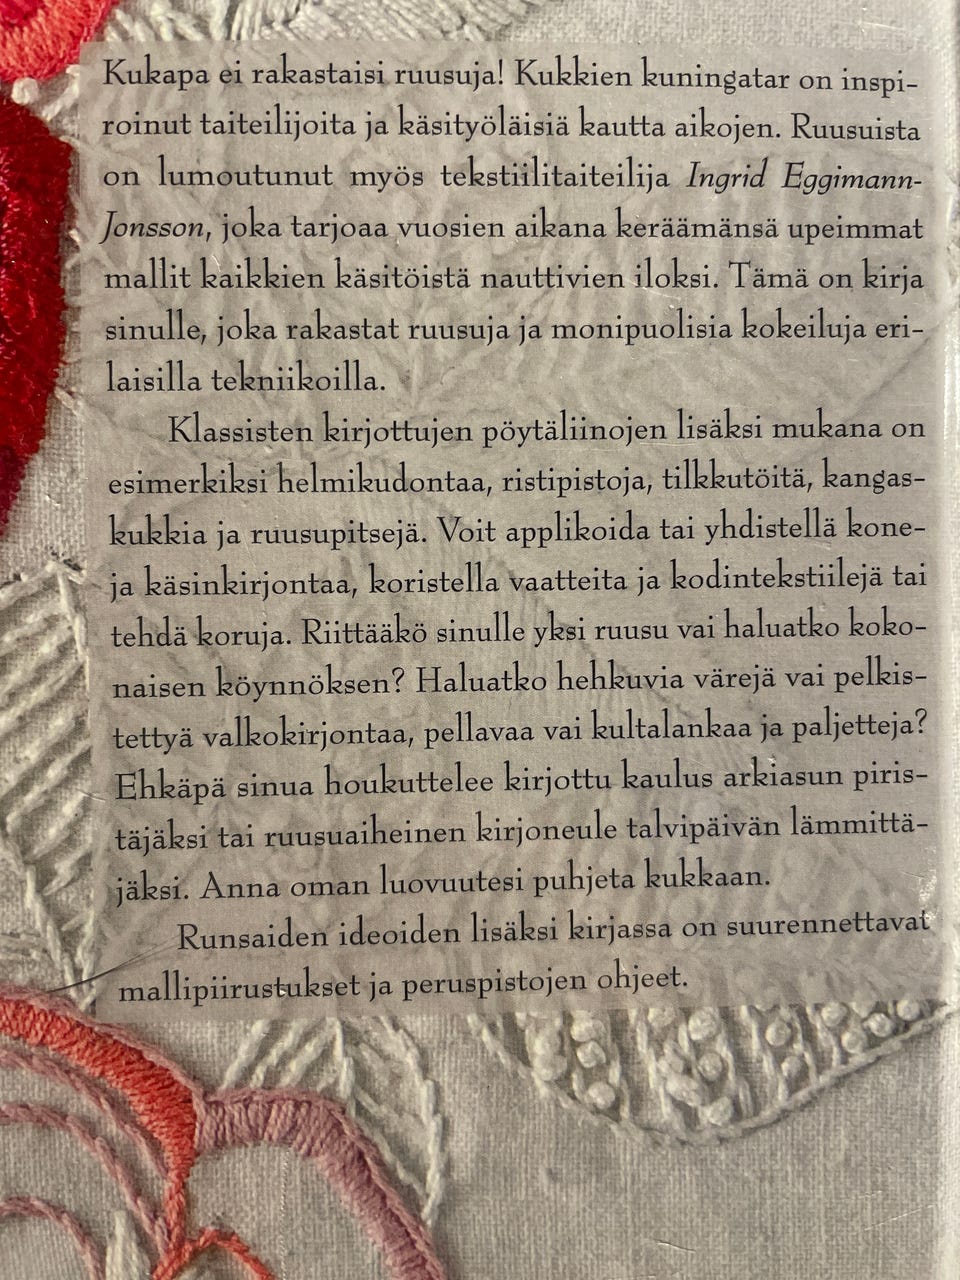 Kukapa ei rakastaisi ruusuja! Kukkien kuningatar on inspi-
roinut taiteilijoita ja käsityöläisiä kautta aikojen. Ruusuista
on lumoutunut myös tekstiilitaiteilija Ingrid Eggimann-
Jonsson, joka tarjoaa vuosien aikana keräämänsä upeimmat
mallit kaikkien käsitöistä nauttivien iloksi. Tämä on kirja
sinulle, joka rakastat ruusuja ja monipuolisia kokeiluja eri-
laisilla tekniikoilla.
Klassisten kirjottujen pöytäliinojen lisäksi mukana on
esimerkiksi helmikudontaa, ristipistoja, tilkkutöitä, kangas-
kukkia ja ruusupitsejä. Voit applikoida tai yhdistellä kone-
ja käsinkirjontaa, koristella vaatteita ja kodintekstiilejä tai
tehdä koruja. Riittääkö sinulle yksi ruusu vai haluatko koko-
naisen köynnöksen? Haluatko hehkuvia värejä vai pelkis-
tettyä valkokirjontaa, pellavaa vai kultalankaa ja paljetteja?
Ehkäpä sinua houkuttelee kirjottu kaulus arkiasun piris-
täjäksi tai ruusuaiheinen kirjoneule talvipäivän lämmittä-
jäksi. Anna oman luovuutesi puhjeta kukkaan.
Runsaiden ideoiden lisäksi kirjassa on suurennettavat
mallipiirustukset ja peruspistojen ohjeet.